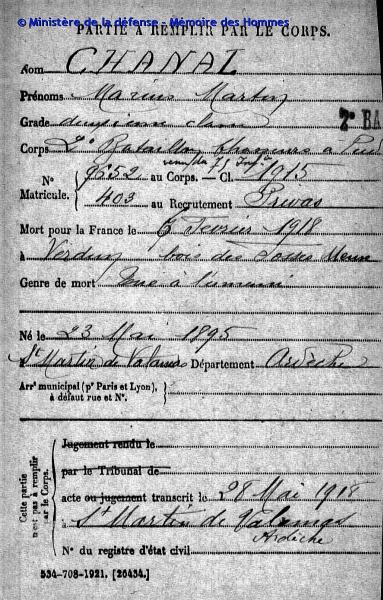 © Ministère de la défense - Mémoire des Hommes
PARTIE A REMPLIR PAR LE CORPS.
Nom CHANAL
Prénoms Marius Martin
Grade deuxième classe
2e BA
Corps 2e Bataillon Chasseurs à Pied
venu du
N° 9552 au Corps. — Cl. 1915
Matricule. 403 au Recrutement Privas
Mort pour la France le 6 Février 1918
à Verdun bois des Fosses Meuse
Genre de mort Tué à l'ennemi
Né le 23 Mai 1895
à St Martin de Valamas Département Ardèche
Arrt municipal (pr Paris et Lyon),
à défaut rue et N°.
Cette partie
n'est pas à remplir
par le Corps.
Jugement rendu le
par le Tribunal de
acte ou jugement transcrit le 28 Mai 1918
à St Martin de Valamas
Ardèche
N° du registre d'état civil
534-708-1921. [26434.]